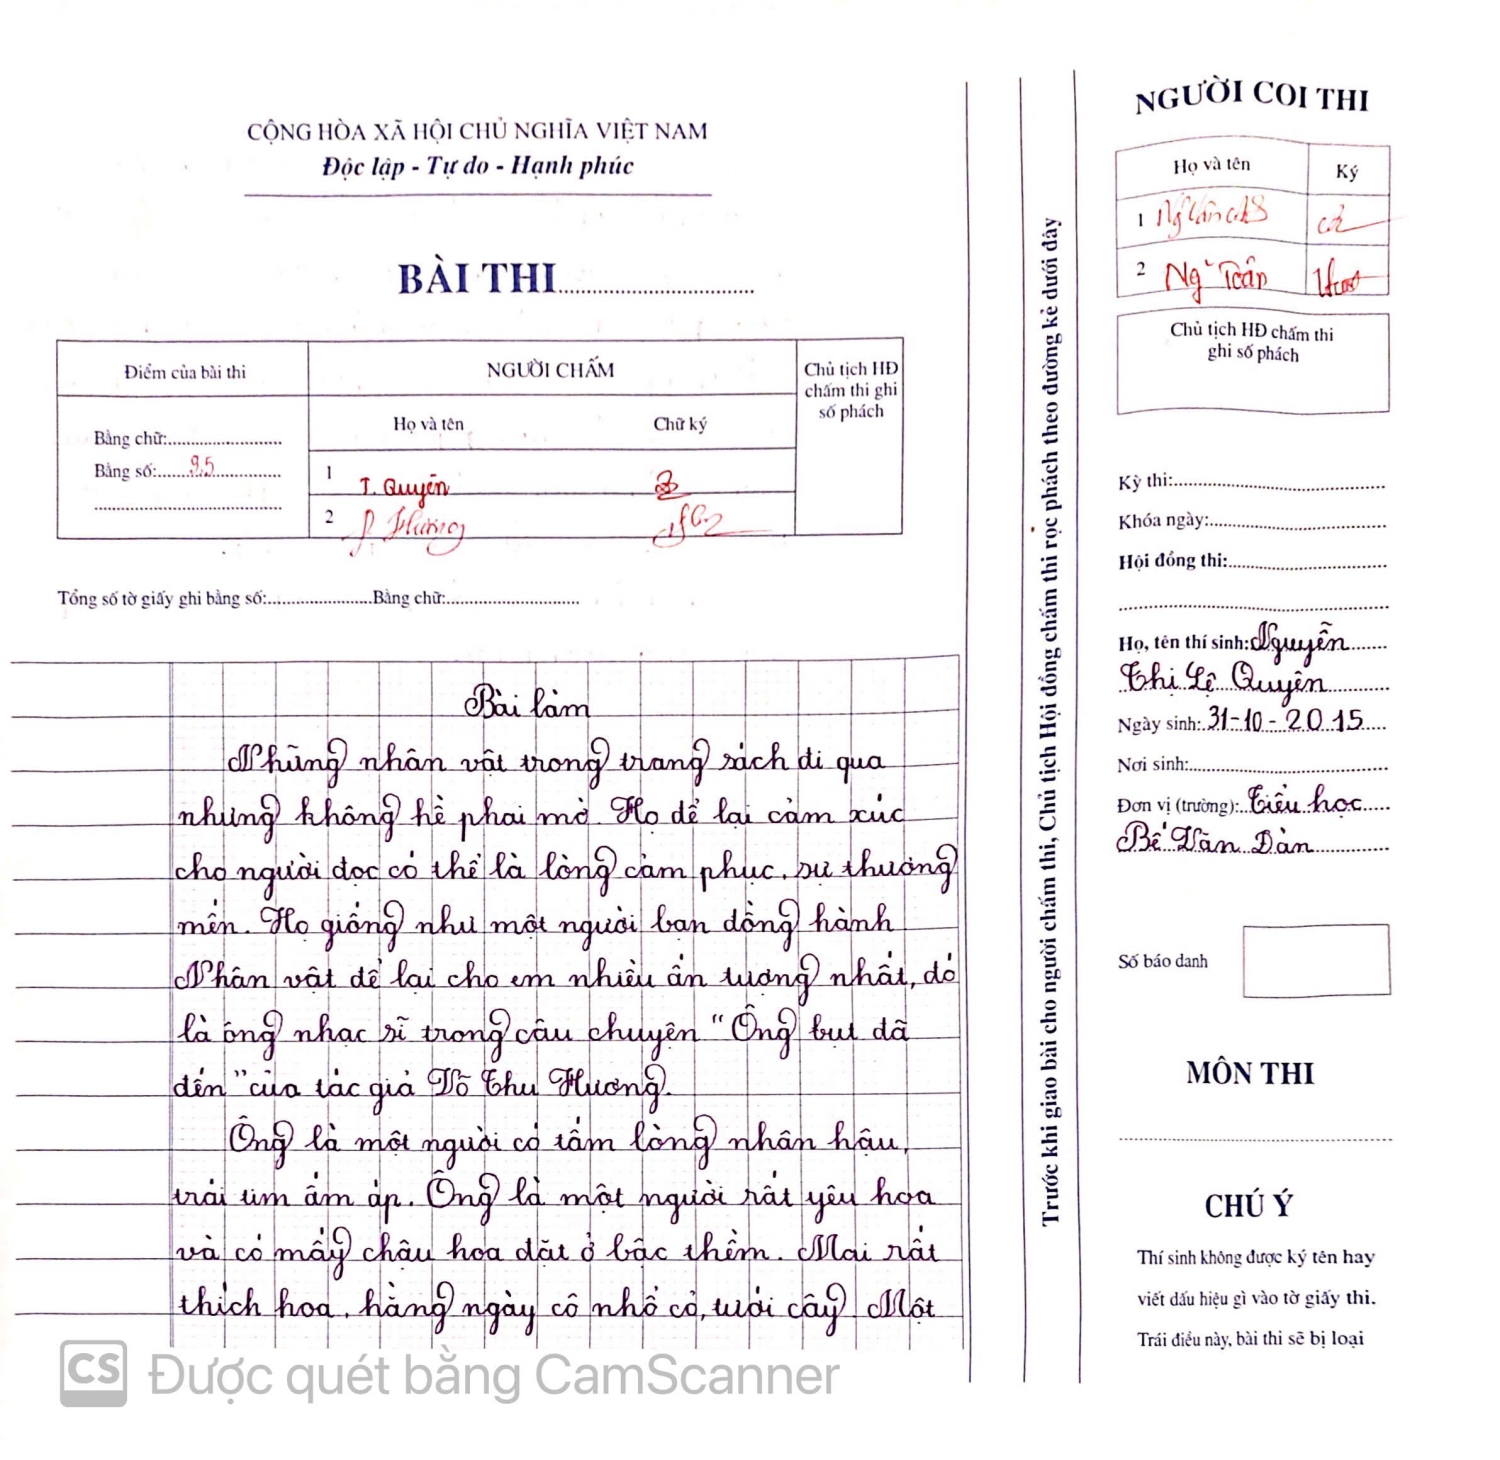 CỘNG HÒA XÃ HỘI CHỦ NGHĨA VIỆT NAM
Độc lập - Tự do - Hạnh phúc
BÀI THI
Điểm của bài thi
NGƯỜI CHẤM
Chủ tịch HĐ
chấm thi ghi
số phách
Họ và tên
Chữ ký
Bằng chữ:
Bằng số: 9,5
1 T. Quyên
2 Hương
Tổng số tờ giấy ghi bằng số: Bằng chữ:
Bài làm
Những nhân vật trong trang sách đi qua
nhưng không hề phai mờ. Họ để lại cảm xúc
cho người đọc có thể là lòng cảm phục, sự thương
mến. Họ giống như một người bạn đồng hành
Nhân vật để lại cho em nhiều ấn tượng nhất, đó
là ông nhạc sĩ trong câu chuyện "Ông bụt đã
đến" của tác giả Võ Thu Hương.
Ông là một người có tấm lòng nhân hậu,
trái tim ấm áp. Ông là một người rất yêu hoa
và có mấy chậu hoa đặt ở bậc thềm. Mai rất
thích hoa, hằng ngày cô nhổ cỏ, tưới cây Một
Trước khi giao bài cho người chấm thi, Chủ tịch Hội đồng chấm thi rọc phách theo đường kẻ dưới đây
NGƯỜI COI THI
Họ và tên
Ký
1
2 Ng Toản
Chủ tịch HĐ chấm thi
ghi số phách
Kỳ thi:
Khóa ngày:
Hội đồng thi:
Họ, tên thí sinh: Nguyễn
Thị Lệ Quyên
Ngày sinh: 31-10-2015
Nơi sinh:
Đơn vị (trường): Tiểu học
Bế Văn Đàn
Số báo danh
MÔN THI
CHÚ Ý
Thí sinh không được ký tên hay
viết dấu hiệu gì vào tờ giấy thi.
Trái điều này, bài thi sẽ bị loại
CS Được quét bằng CamScanner